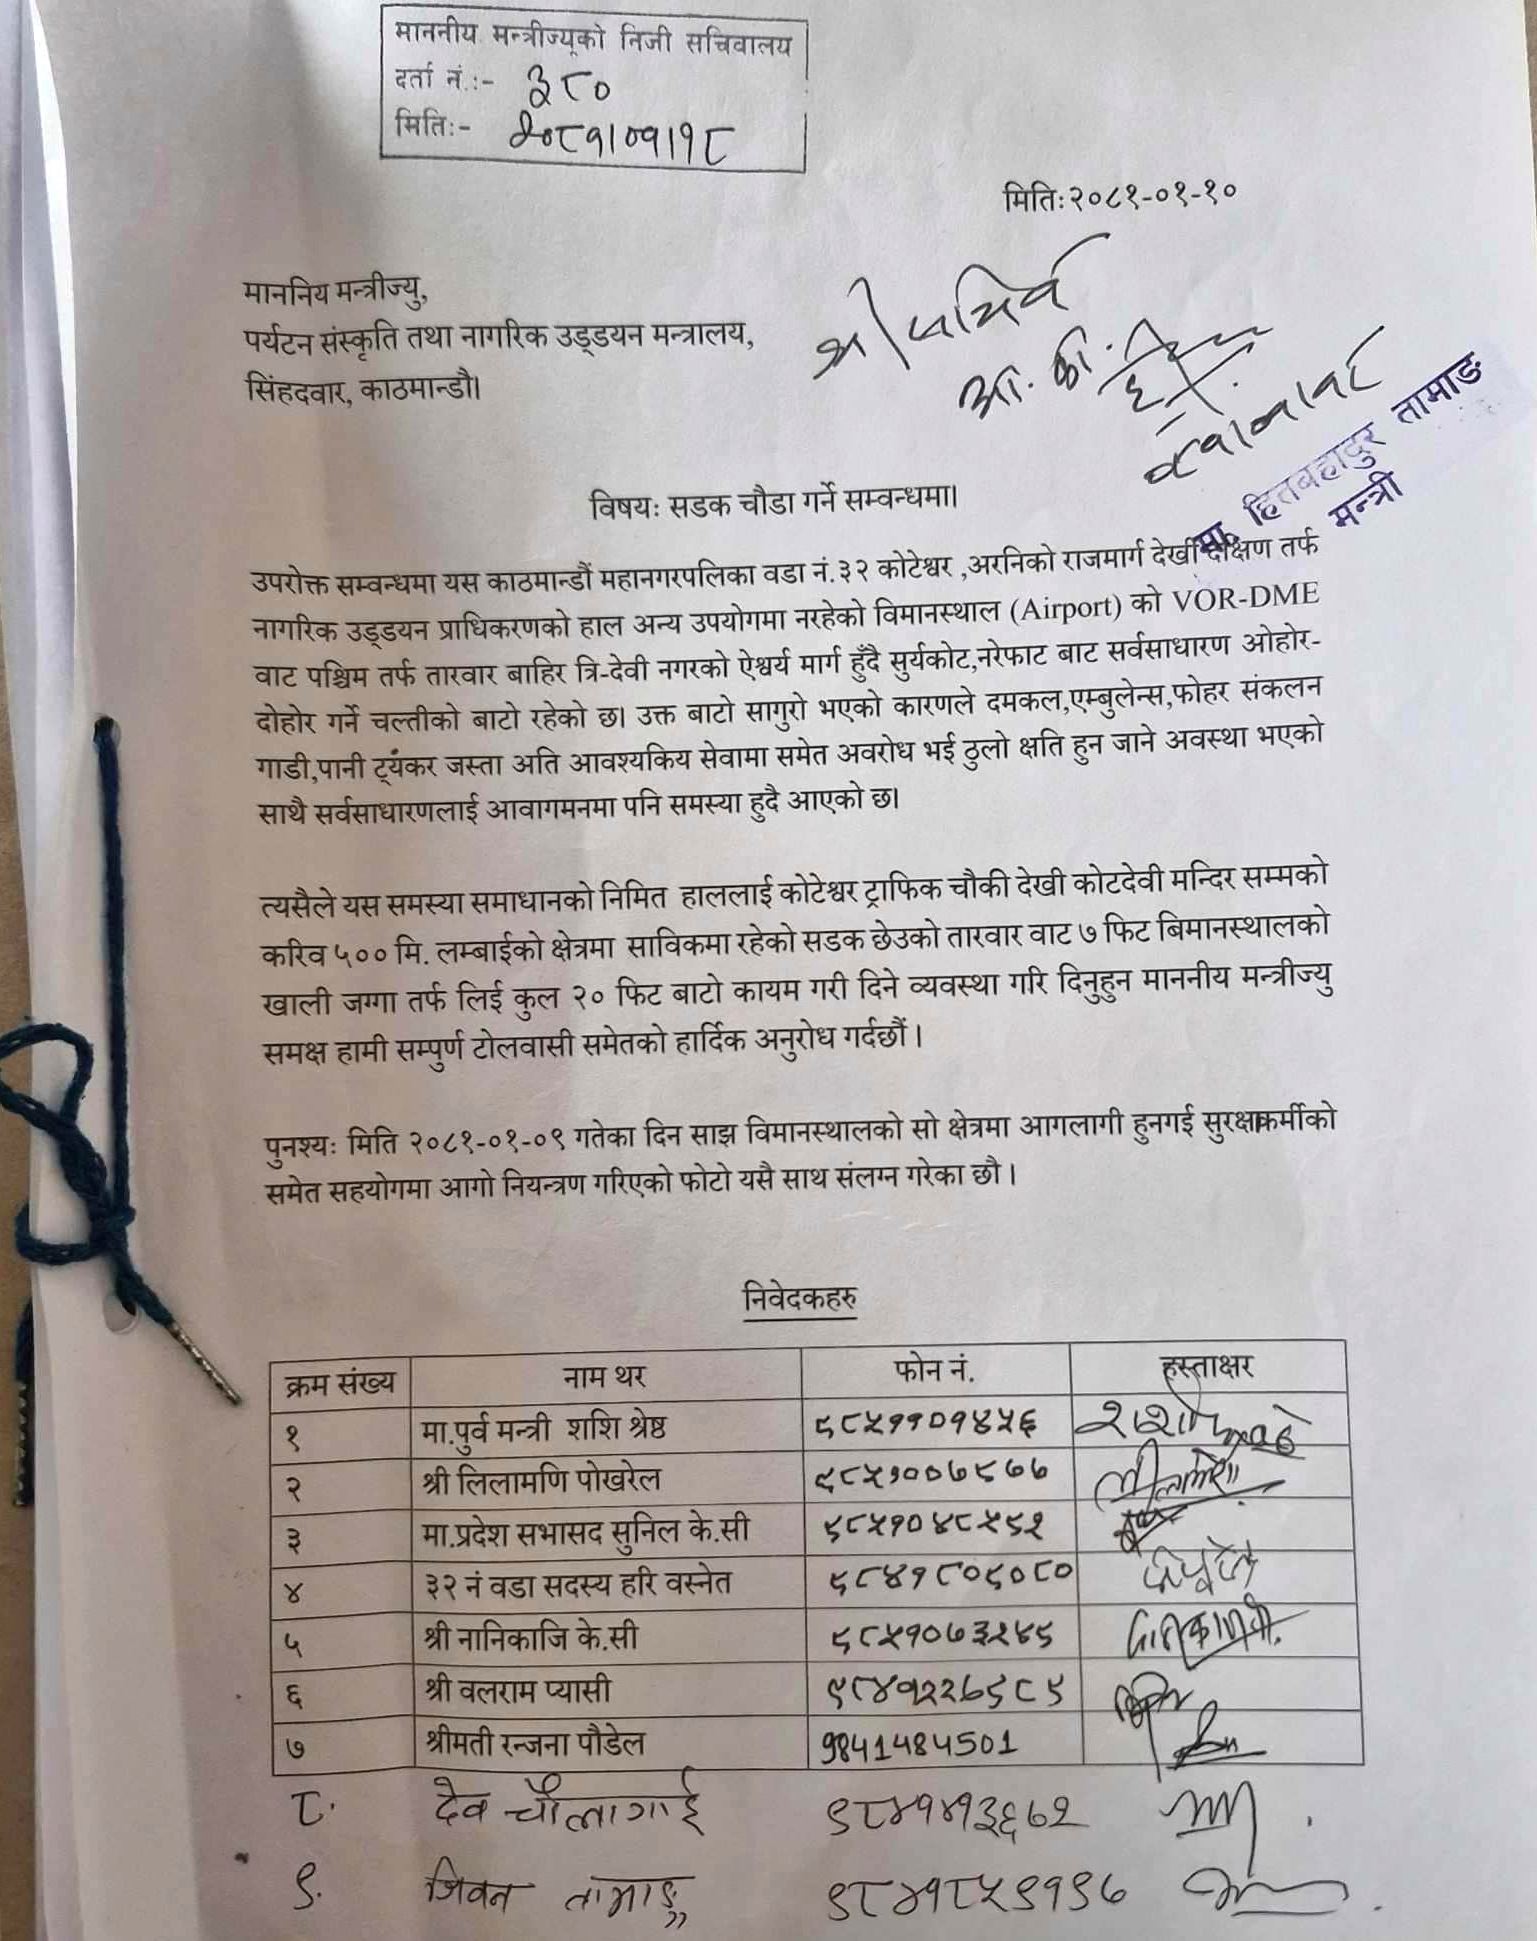 माननीय मन्त्रीज्यूको निजी सचिवालय
दर्ता नं.:- ३८०
मिति:- २०८१।०१।१८
मिति:२०८१-०१-१०
माननिय मन्त्रीज्यु,
पर्यटन संस्कृति तथा नागरिक उड्डयन मन्त्रालय,
सिंहदवार, काठमान्डौ।
श्री
मा. हितबहादुर तामाङ
मन्त्री
विषय: सडक चौडा गर्ने सम्वन्धमा।
उपरोक्त सम्वन्धमा यस काठमान्डौं महानगरपलिका वडा नं.३२ कोटेश्वर ,अरनिको राजमार्ग देखी दक्षिण तर्फ
नागरिक उड्डयन प्राधिकरणको हाल अन्य उपयोगमा नरहेको विमानस्थाल (Airport) को VOR-DME
वाट पश्चिम तर्फ तारवार बाहिर त्रि-देवी नगरको ऐश्वर्य मार्ग हुँदै सुर्यकोट,नरेफाट बाट सर्वसाधारण ओहोर-
दोहोर गर्ने चल्तीको बाटो रहेको छ। उक्त बाटो सागुरो भएको कारणले दमकल,एम्बुलेन्स,फोहर संकलन
गाडी,पानी ट्यंकर जस्ता अति आवश्यकिय सेवामा समेत अवरोध भई ठुलो क्षति हुन जाने अवस्था भएको
साथै सर्वसाधारणलाई आवागमनमा पनि समस्या हुदै आएको छ।
त्यसैले यस समस्या समाधानको निमित हाललाई कोटेश्वर ट्राफिक चौकी देखी कोटदेवी मन्दिर सम्मको
करिव ५०० मि. लम्बाईको क्षेत्रमा साविकमा रहेको सडक छेउको तारवार वाट ७ फिट बिमानस्थालको
खाली जग्गा तर्फ लिई कुल २० फिट बाटो कायम गरी दिने व्यवस्था गरि दिनुहुन माननीय मन्त्रीज्यु
समक्ष हामी सम्पुर्ण टोलवासी समेतको हार्दिक अनुरोध गर्दछौं ।
पुनश्यः मिति २०८१-०१-०९ गतेका दिन साझ विमानस्थालको सो क्षेत्रमा आगलागी हुनगई सुरक्षाकर्मीको
समेत सहयोगमा आगो नियन्त्रण गरिएको फोटो यसै साथ संलग्न गरेका छौ ।
निवेदकहरु
क्रम संख्य नाम थर फोन नं. हस्ताक्षर
१ मा.पुर्व मन्त्री शशि श्रेष्ठ ९८५११०१४५६
२ श्री लिलामणि पोखरेल ९८५१००७९७७
३ मा.प्रदेश सभासद सुनिल के.सी ९८५१०४८५९२
४ ३२ नं वडा सदस्य हरि वस्नेत ९८४१८०९०८०
५ श्री नानिकाजि के.सी ९८५१०७३२४९
६ श्री वलराम प्यासी ९८४१२२७९८९
७ श्रीमती रन्जना पौडेल 9841484501
८. देव चौलागाई ९८४१४१३६७२
९. जिवन तामाङ्ग ९८४१८५९१९७